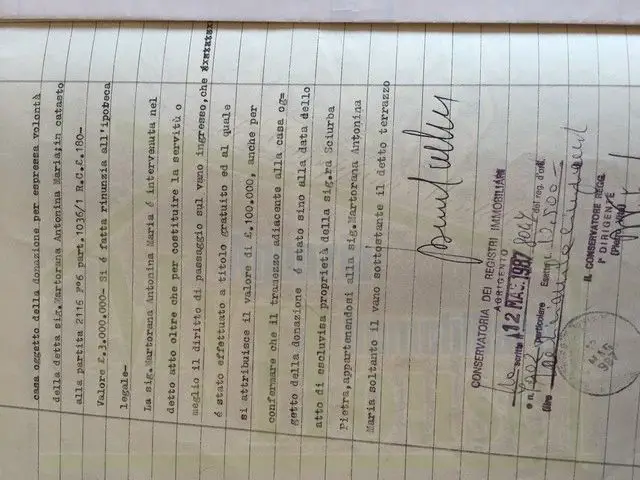 casa oggetto della donazione per espressa volontà
della detta sig.Martorana Antonina Maria;in catasto
alla partita 2116 Fº6 part.1036/1 R.C.£.180-
Valore £.3.000.000- Si é fatta rinunzia all'ipoteca
legale-
La sig.Martorana Antonina Maria é intervenuta nel
detto atto oltre che per costituire la servitù o
meglio il diritto di passaggio sul vano ingresso,che
é stato effettuato a titolo gratuito ed al quale
si attribuisce il valore di £.100.000, anche per
confermare che il tramezzo adiacente alla casa og=
getto della donazione é stato sino alla data dello
atto di esclusiva proprietà della sig.ra Sciurba
Pietra,appartenendosi alla sig.Martorana Antonina
Maria soltanto il vano sottostante il detto terrazzo
CONSERVATORIA DEI REGISTRI IMMOBILIARI
AGRIGENTO
12 MAG.1987
del reg. d'ord.
e n. Particolare Esatte £.
lire
IL CONSERVATORE REGG.
Iº DIRIGENTE